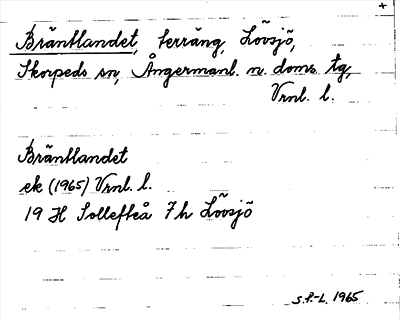 Bräntlandet, terräng, Lövsjö,
Skorpeds sn, Ångermanl. n. doms tg,
Vrnl. l.
Bräntlandet
ek (1965) Vrnl. l.
19 H Sollefteå 7h Lövsjö
S.P.-L. 1965